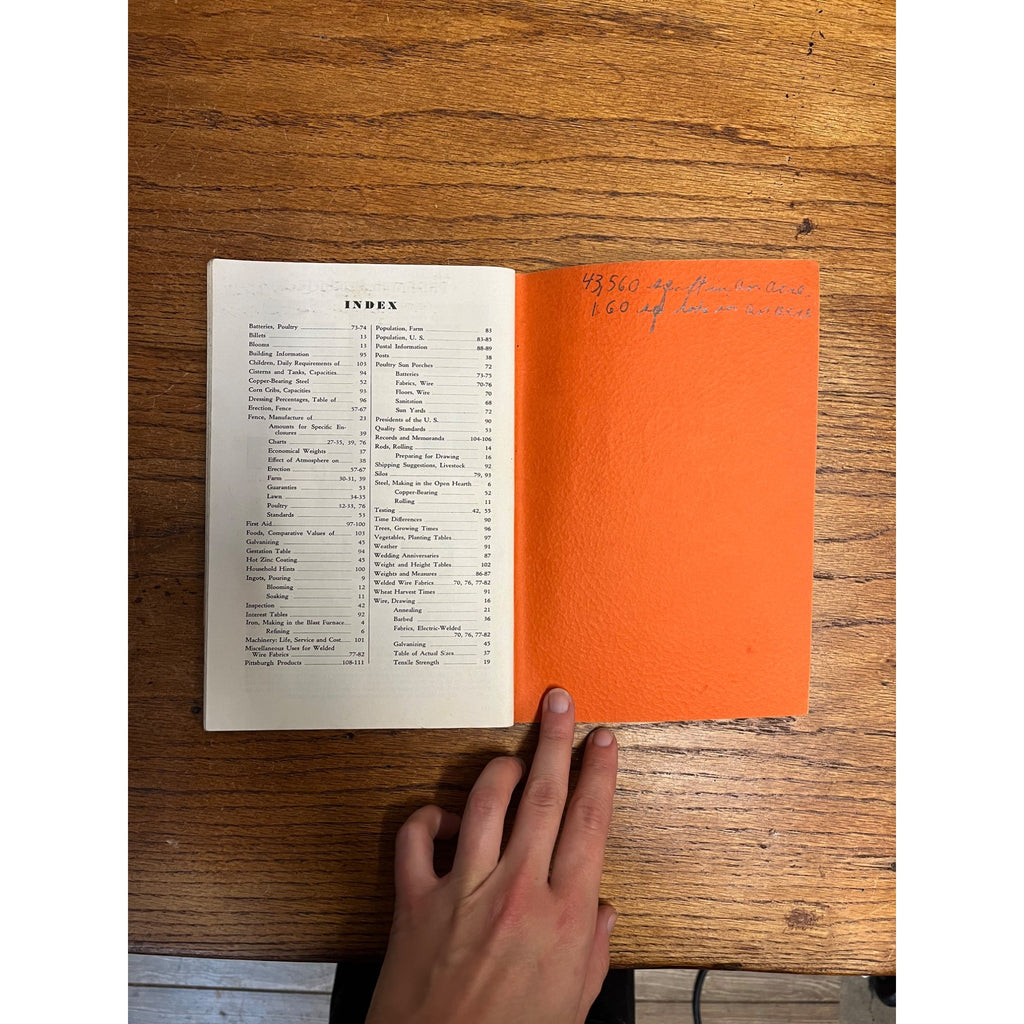 INDEX
Batteries, Poultry 73-74
Billets 13
Blooms 13
Building Information 95
Children, Daily Requirements of 103
Cisterns and Tanks, Capacities 94
Copper-Bearing Steel 52
Corn Cribs, Capacities 93
Dressing Percentages, Table of 96
Erection, Fence 57-67
Fence, Manufacture of 23
Amounts for Specific En-
closures 39
Charts 27-35, 39, 76
Economical Weights 37
Effect of Atmosphere on 38
Erection 57-67
Farm 30-31, 39
Guaranties 53
Lawn 34-35
Poultry 32-33, 76
Standards 53
First Aid 97-100
Foods, Comparative Values of 103
Galvanizing 45
Gestation Table 94
Hot Zinc Coating 45
Household Hints 100
Ingots, Pouring 9
Blooming 12
Soaking 11
Inspection 42
Interest Tables 92
Iron, Making in the Blast Furnace 4
Refining 6
Machinery: Life, Service and Cost 101
Miscellaneous Uses for Welded
Wire Fabrics 77-82
Pittsburgh Products 108-111
Population, Farm 83
Population, U. S. 83-85
Postal Information 88-89
Posts 38
Poultry Sun Porches 72
Batteries 73-75
Fabrics, Wire 70-76
Floors, Wire 70
Sanitation 68
Sun Yards 72
Presidents of the U. S. 90
Quality Standards 53
Records and Memoranda 104-106
Rods, Rolling 14
Preparing for Drawing 16
Shipping Suggestions, Livestock 92
Silos 79, 93
Steel, Making in the Open Hearth 6
Copper-Bearing 52
Rolling 11
Testing 42, 55
Time Differences 90
Trees, Growing Times 96
Vegetables, Planting Tables 97
Weather 91
Wedding Anniversaries 87
Weight and Height Tables 102
Weights and Measures 86-87
Welded Wire Fabrics 70, 76, 77-82
Wheat Harvest Times 91
Wire, Drawing 16
Annealing 21
Barbed 36
Fabrics, Electric-Welded
70, 76, 77-82
Galvanizing 45
Table of Actual Sizes 37
Tensile Strength 19
43,560 sq ft in
160 sq